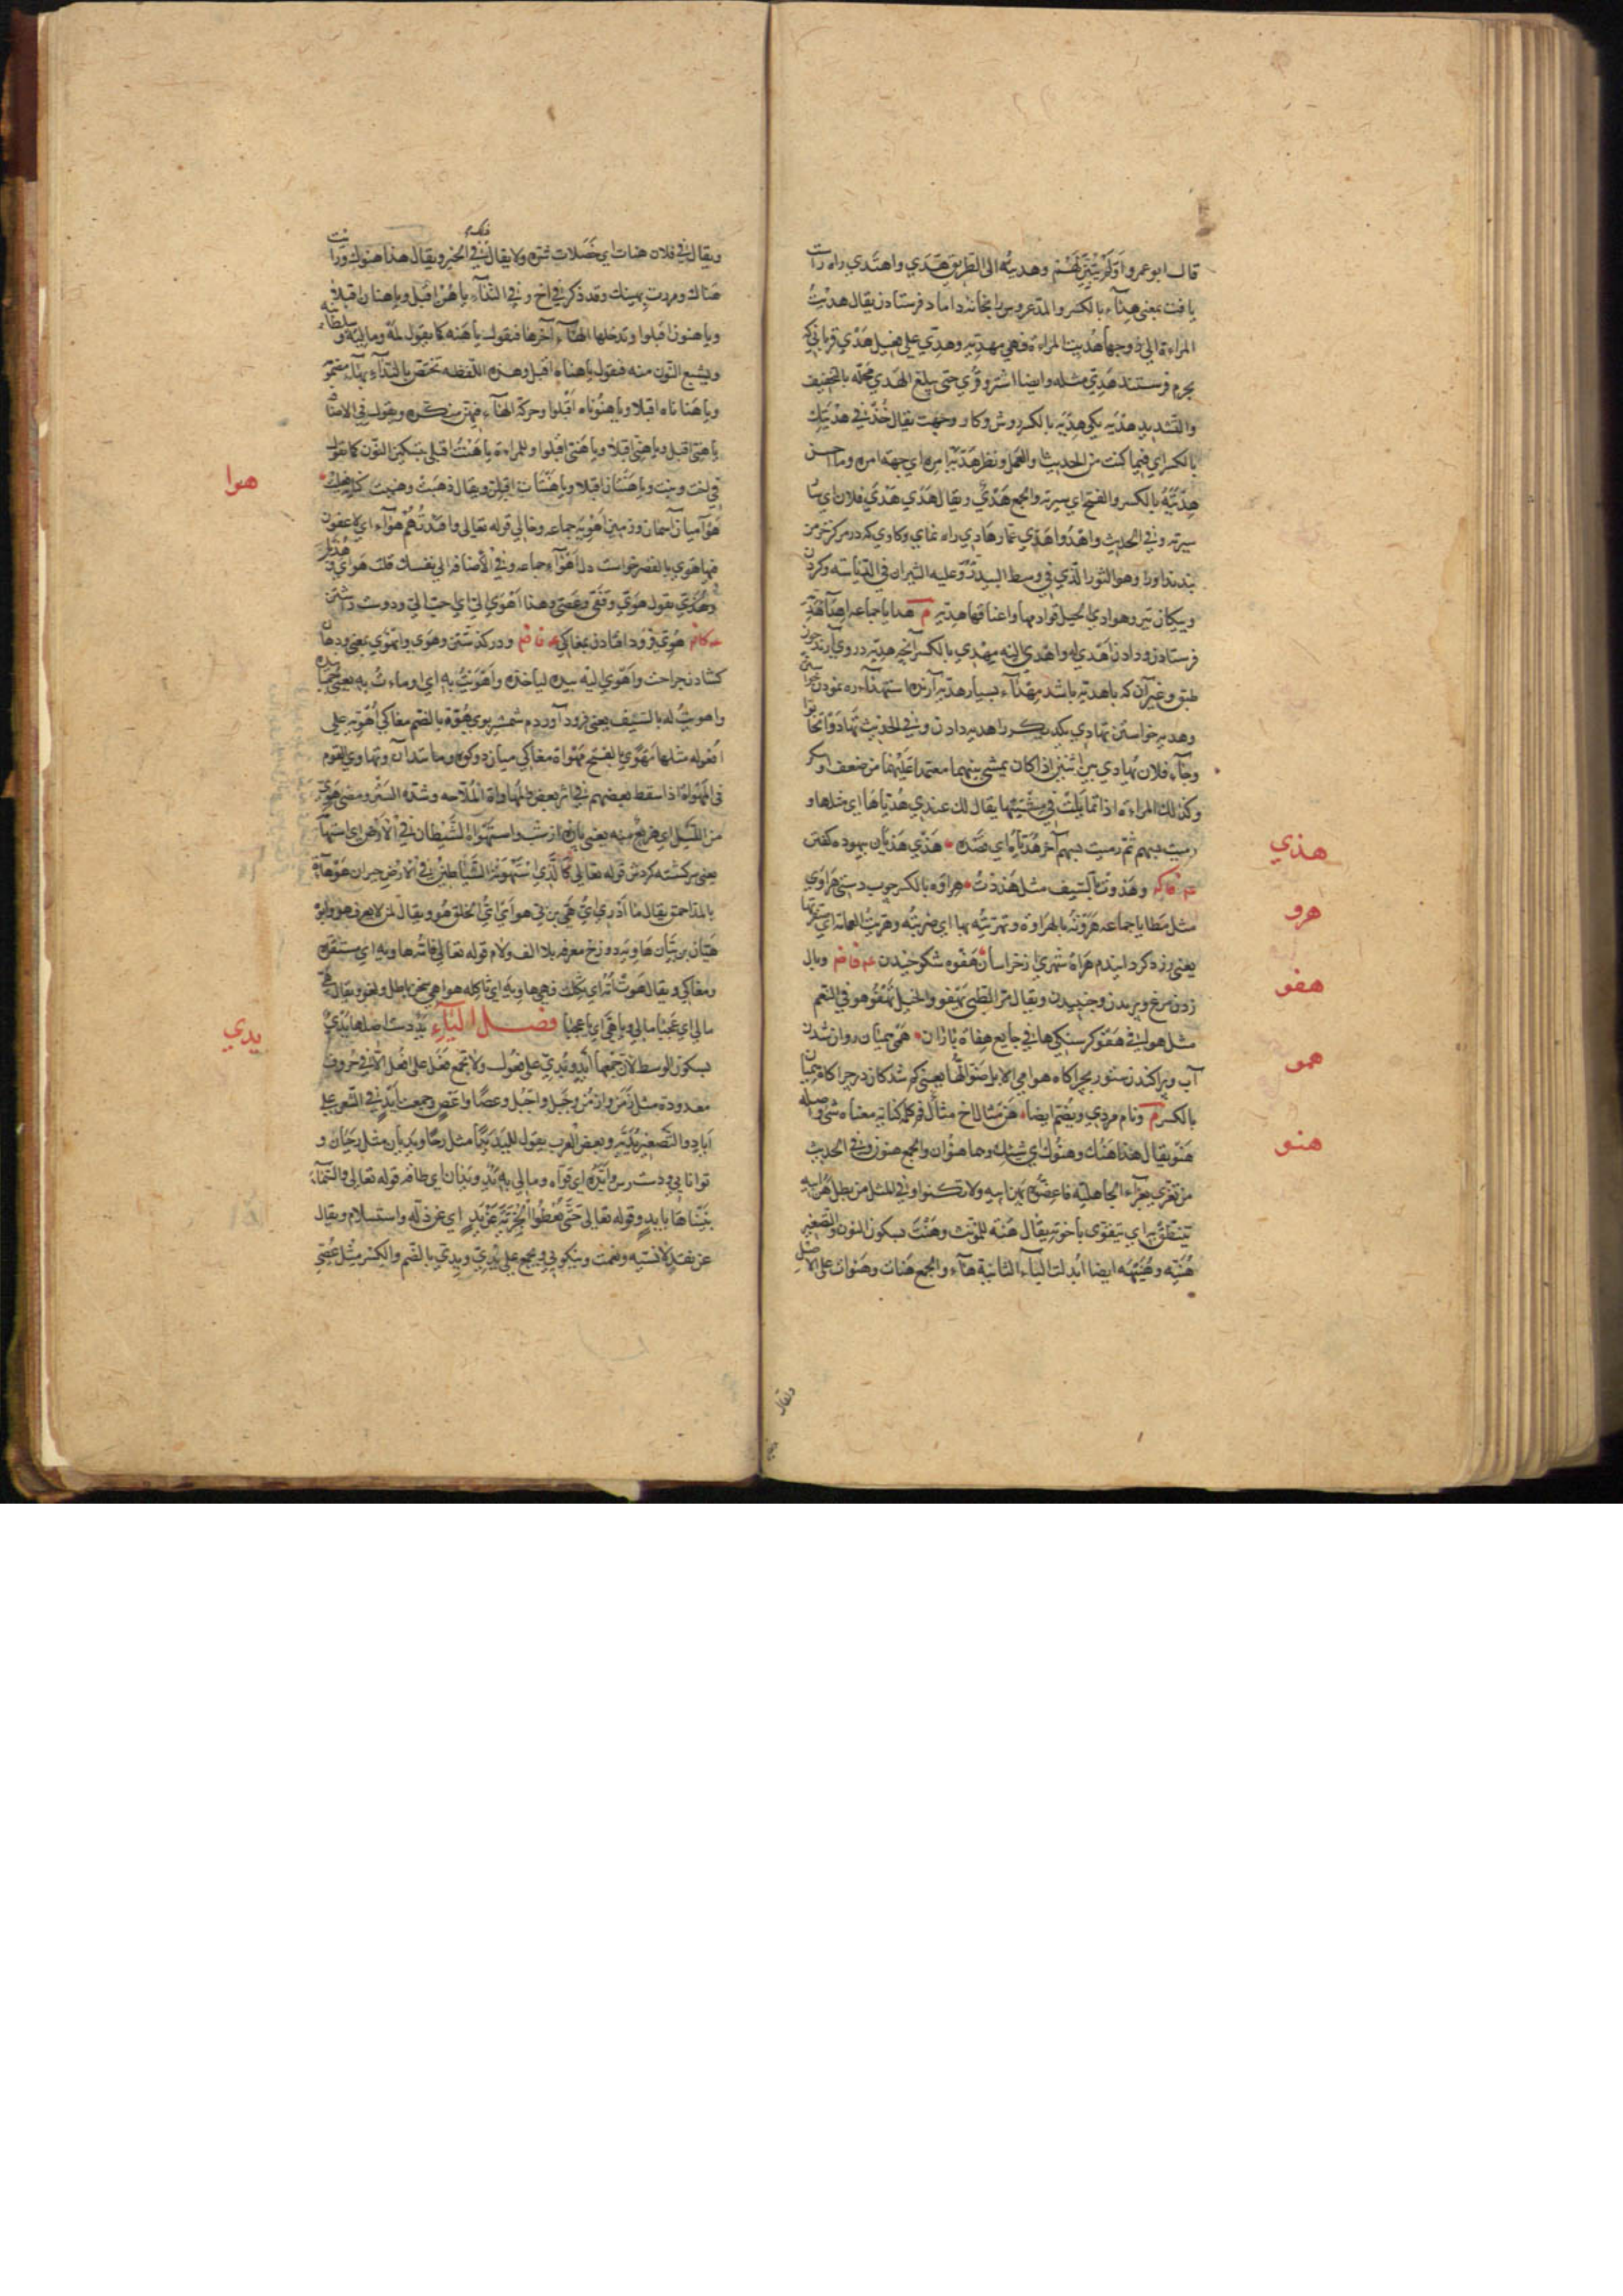 قال ابو عمرو اولم يبين لهم وهديته الى الطريق هدي واهتدي راه راست
يافت بمعنى هداء بالكسر والمد عروس را بخانه داماد فرستادن يقال هديت
المراءة الي زوجها هديت المراءة فهي مهدية وهدي علي فعيل هدي قرباني كه
بحرم فرستند هدي مثله وايضا اشتر وقري حتى يبلغ الهدي محله بالتخفيف
والتشديد هدية يكي هدية بالكسر روش وكار وجهت يقال خذ في هديتك
بالكسر اي فيما كنت من الحديث والعمل ونظر هدية امره اي جهة امره وما احسن
هديته بالكسر والفتح اي سيرته والجمع هدي ويقال هدي هدي فلان اي سار
سيرته وفي الحديث واهدوا هدي عمار هادي راه نماي وكاوي كه در مركز خرمن
بندند اورا وهو الثور الذي في وسط البيدر وعليه الثيران في الدياسة وكردن
وپيكان تير وهوادي الخيل قوادمها واعناقها هدية م هدايا جماعه اهدا هدية
فرستادن ودادن اهدي له واهدي اليه مهدي بالكسر آنچه هديه در وي آرند چون
طبق وغير آن كه با هديه باشد مهداء بسيار هديه آرنده استهداء ره نمودن خواستن
وهديه خواستن تهادي يكديكر را هديه دادن وفي الحديث تهادوا تحابوا
وجاء فلان يهادي بين اثنين اذا كان يمشي بينهما معتمدا عليهما من ضعف او سكر
وكذلك المراءة اذا تمايلت في مشيتها يقال لك عندي هدياها اي مثلها و
رميت بسهم ثم رميت بسهم آخر هدياه اي قصده هذي هذيان بيهوده كفتن
وهذوت بالسيف مثل هذذت هراوه بالكسر چوب دستي هراوي
مثل مطايا جماعه هروته بالهراوة وتهريته بها اي ضربته وهريت العمامة اي صفرتها
يعني زرد كردانيدم هراة شهري از خراسان هفوه شكوخيدن وبال
زدن مرغ وپريدن وجنبيدن ويقال مر الظبي يهفو
مثل هوا هفو كرسنكي هافي جايع هفاة باران همي هميان روان شدن
آب وپراكنده شدن ستور بچراكاه هوامي الابل ضوالها يعني كم شدكان در چراكاه هميان
بالكسر م ونام مردي ويضم ايضا هن مثال اخ كلمه كنايه معناه شي واصله
هنو يقال هذا هنك وهنوك اي شيئك وهما هنوان والجمع هنون وفي الحديث
من تعزي بعزاء الجاهلية فاعضوه بهن ابيه ولا تكنوا وفي المثل من يطل هن ابيه
ينتطق به اي يتقوي باخوته يقال هنه للمؤنث وهنت بسكون النون والتصغير
هنية وهنيهة ايضا ابدلت الياء الثانية هاء والجمع هنات وهنوات على الاصل
هذي
هرو
هفو
همو
هنو
ويقال
ويقال في فلان هنات اي خصلات شر ولا يقال في الخير ويقال هذا هنوك ورايت
هناك ومررت بهنيك وقد ذكر في اخ وفي النداء يا هن اقبل ويا هنان اقبلا
ويا هنون اقبلوا وتدخلها الهاء آخرها فيقول يا هنه كما يقول لمه وماليه وسلطانيه
ويشبع النون منه فيقول يا هناه اقبل وهذه اللفظه تختص بالنداء
ويا هناناه اقبلا ويا هنوناه اقبلوا وحركة الهاء فيهن منكره ويقول في الاضافة
يا هني اقبل ويا هني اقبلا ويا هني اقبلوا وللمراءة يا هنت اقبلي بتسكين النون كما يقول
في اخت وبنت ويا هنتان اقبلا ويا هنتات اقبلن ويقال ذهبت وهنيت
هوا ميان آسمان وزمين اهويه جماعه وخالي قوله تعالى وافئدتهم هواء اي لا عقول
فيها هوي بالقصر خواست دل اهواء جماعه وفي الاضافة الي نفسك قلت هواي
يقول هوي وقفي وعصي وهذا اهوي الي اي احب الي ودوست داشتن
هوي فرود افتادن بمغاكي ودر كذشتن وهوي وانهوي بمعنى ودهان
كشادن جراحت واهوي اليه بيده ليأخذه واهويت به اي اوماءت به
واهويت له بالسيف يعني فرود آوردم شمشير بوي هوة بالضم مغاكي اهوية علي
افعوله مثلها مهوي بالفتح مهواة مغاكي ميان دو كوه وما نند آن وتهاوي القوم
في المهواة اذا سقط بعضهم في اثر بعض المهاواة الملاجه وشدة السير ومضي هوي
من الليل اي هزيع منه يعني پاره از شب واستهواه الشيطان في الارض اي استهامه
يعني سركشته كردش قوله تعالى كالذي استهوته الشياطين في الارض حيران هوهاءة
بالمد احمق يقال ما ادري اي هي بن بي هو اي اي الخلق هو ويقال لمن لا يعرف هو وابوه
هيان بن بيان هاويه دوزخ معرفه بلا الف ولام قوله تعالى فامه هاويه اي مستقره
ومغاكي ويقال هوت امه اي ثكلت فهي هاوية اي ثاكله هواهي سخن باطل ولغو ويقال يا هي
مالي اي عجبا مالي ويا فتي اي يا عجبا فصل الياء يد دست اصلها يدي
بسكون الوسط لان جمعها ايد ويدي على فعول ولا تجمع فعل على افعل الا في حروف
معدودة مثل زمن وازمن وجبل واجبل وعصا واعص وجمعت ايد في الشعر علي
اياد والتصغير يدية وبعض العرب يقول لليد يدا مثل رحا ويديان مثل رحيان و
توانايي ودست رس وايده اي قواه ومالي به يد ويدان اي طاقه قوله تعالى والسماء
بنيناها بايد وقوله تعالى حتى يعطوا الجزية عن يد اي عن ذله واستسلام ويقال
عن نقد لا نسيه ونعمت ونيكويي ويجمع علي يدي ويدي بالضم والكسر مثل عصي
هوا
يدي